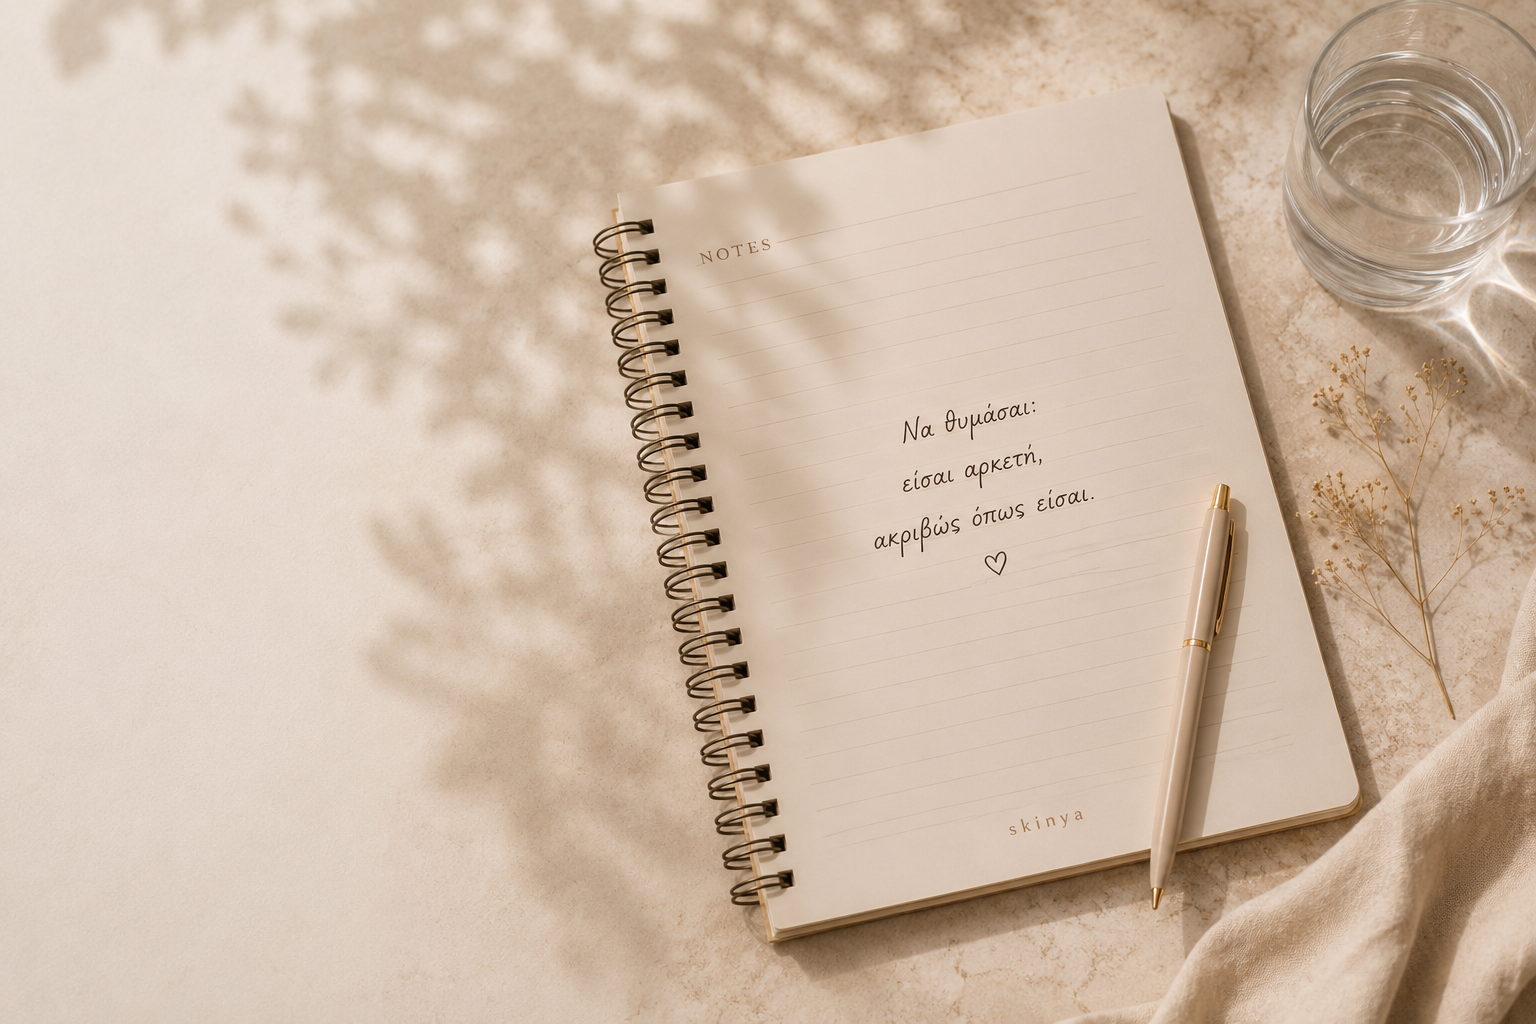 NOTES
Να θυμάσαι:
είσαι αρκετή,
ακριβώς όπως είσαι.
♡
skinya